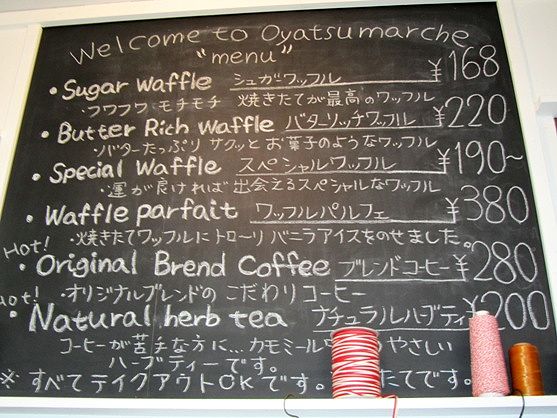 Welcome to Oyatsumarche
"menu"
・Sugar Waffle シュガワッフル ¥168
・フワフワ モチモチ 焼きたてが最高のワッフル
・Butter Rich Waffle バターリッチワッフル ¥220
・バターたっぷり サクッとお菓子のようなワッフル
・Special Waffle スペシャルワッフル ¥190~
・運が良ければ出会えるスペシャルなワッフル
・Waffle parfait ワッフルパルフェ ¥380
・焼きたてワッフルにトローリバニラアイスをのせました。
Hot!
・Original Brend Coffee ブレンドコーヒー ¥280
Hot! ・オリジナルブレンドのこだわりコーヒー
・Natural herb tea ナチュラルハーブティ ¥200
コーヒーが苦手な方に… カモミール やさしい
ハーブティーです。
※すべてテイクアウトOKです。 たてです。